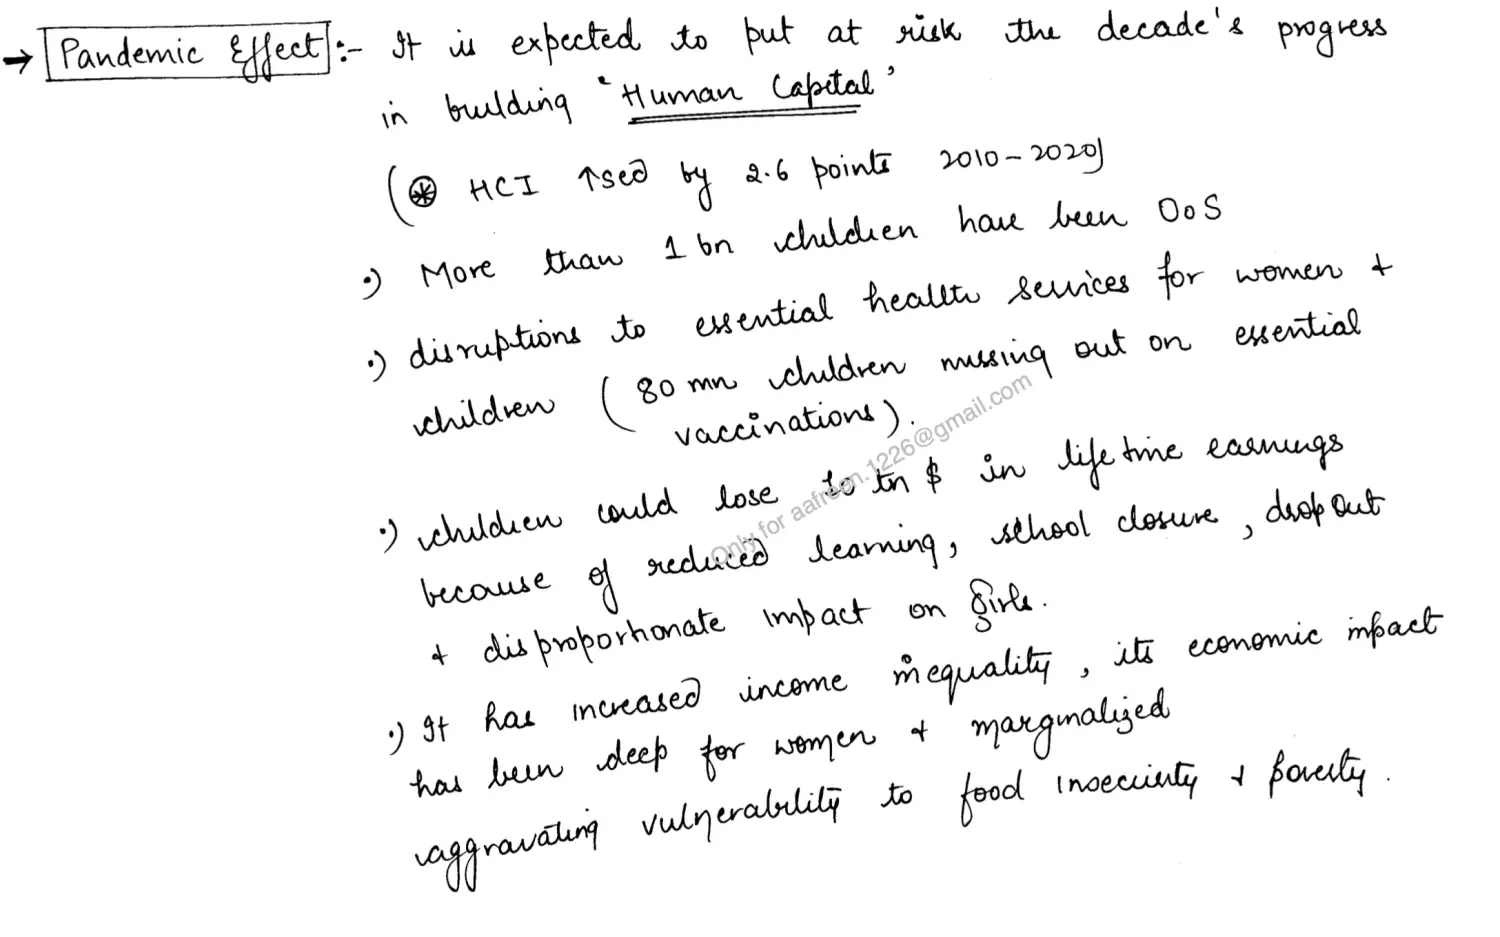 → Pandemic Effect :- It is expected to put at risk the decade's progress
in building 'Human Capital'
(⊛ HCI ↑sed by 2.6 points 2010-2020)
•) More than 1 bn children have been OoS
•) disruptions to essential health services for women +
children (80 mn children missing out on essential
vaccinations).
•) children could lose 10 tn $ in life time earnings
because of reduced learning, school closure, drop out
+ disproportionate impact on girls.
•) It has increased income inequality, its economic impact
has been deep for women + marginalized
aggravating vulnerability to food insecurity + poverty.
Only for aafreen.1226@gmail.com